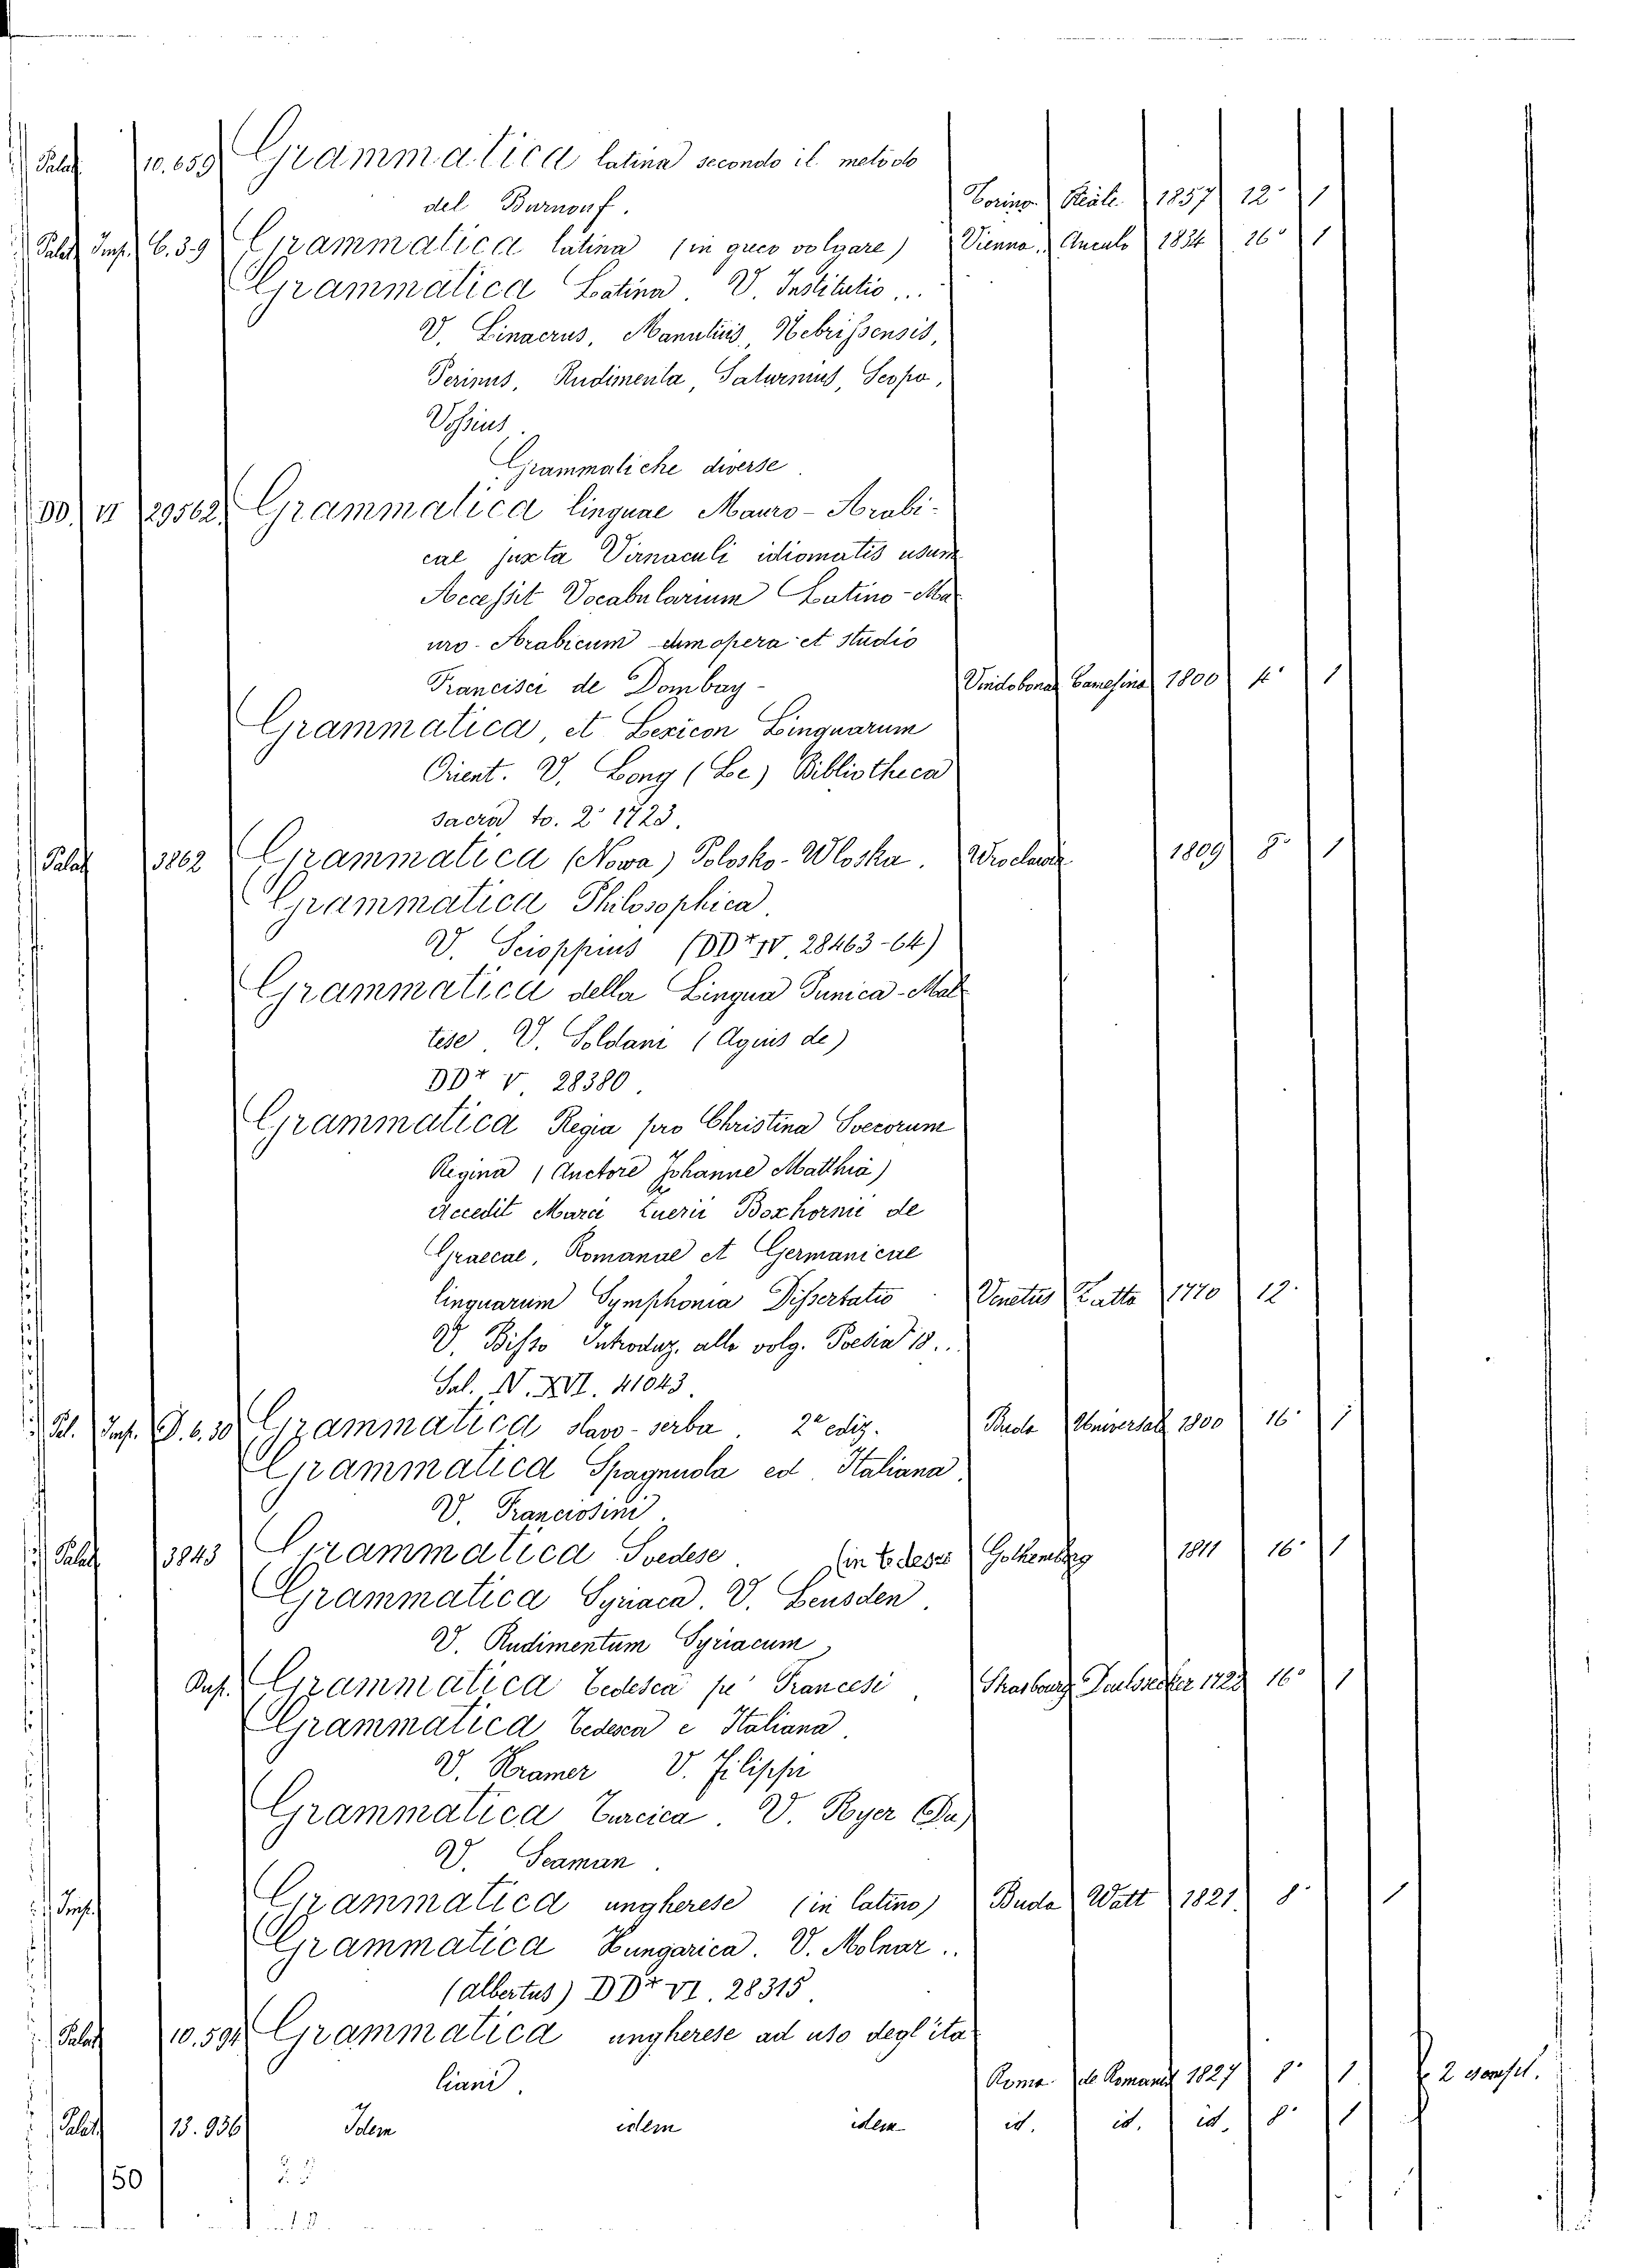 Palat 10.659 Grammatica latina secondo il metodo
del Burnouf. Torino Reale 1857 12° 1
Palat Imp. 6.39 Grammatica latina (in greco volgare) Vienna 1834 16° 1
Grammatica Latina. V. Institutio...
V. Linacrus, Manutius, Nebrissensis,
Perinus, Rudimenta, Saturnius, Scopa,
Vossius.
Grammatiche diverse.
DD. VI 29562 Grammatica linguae Mauro-Arabi-
cae juxta Vernaculi idiomatis usum
Accessit Vocabularium Latino-Ma
uro-Arabicum opera et studio
Francisci de Dombay- Vindobonae Camesina 1800 4° 1
Grammatica, et Lexicon Linguarum
Orient. V. Long (Le) Bibliotheca
sacra to. 2° 1723.
Palat 3862 Grammatica (Nowa) Polosko-Wloska. Wroclaw 1809 8° 1
Grammatica Philosophica.
V. Scioppius (DDr IV. 28463-64)
Grammatica della Lingua Punica-Mal
tese. V. Soldani (Agius de)
DDr V. 28380.
Grammatica Regia pro Christina Svecorum
Regina (Auctore Johanne Matthia)
Accedit Marci Zuerii Boxhornii de
Graecae, Romanae et Germanicae
linguarum Symphonia Dissertatio. Venetiis Zatta 1770 12°
V. Bisso Introduz. alla volg. Poesia 18..
Sal. IV. XVI. 41043.
Pal. Imp. D.6.30 Grammatica slavo-serba. 2a ediz. Buda Universal 1800 16° 1
Grammatica Spagnuola ed Italiana.
V. Franciosini.
Palat 3843 Grammatica Svedese. (in tedesco) Gothenberg 1811 16° 1
Grammatica Syriaca. V. Leusden.
V. Rudimentum Syriacum,
Imp. Grammatica Tedesca pe' Francesi. Strasbourg 1728 16° 1
Grammatica Tedesca e Italiana.
V. Kramer V. Filippi
Grammatica Turcica. V. Ryer (Du)
V. Seaman.
Imp. Grammatica ungherese (in latino) Buda Watt 1821 8° 1
Grammatica Hungarica. V. Molnar..
(Albertus) DDr VI. 28315.
Palat 10.594 Grammatica ungherese ad uso degl'ita
liani. Roma de Romanis 1827 8° 1 2
Palat 13.936 Idem idem idem id. id. id. 8° 1
150